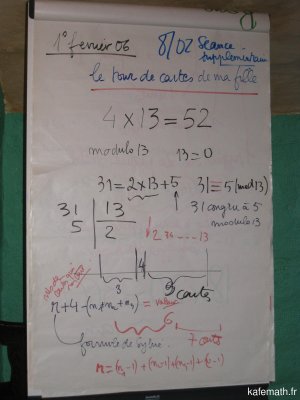 1° fevrier 06
8/02 Séance
supplémentaire
le tour de cartes de ma fille
4 × 13 = 52
modulo 13 13 = 0
31 = 2 × 13 + 5 31 ≡ 5 (mod 13)
31 | 13
5 | 2
31 congru à 5
modulo 13
2 ... 13
3 4 9 cartes
r + 4 - (n₁ + n₂ + n₃) = valeur
6
7 cartes
formule de
r = (n₁-1) + (n₂-1) + (n₃-1) + (r-1)
kafemath.fr